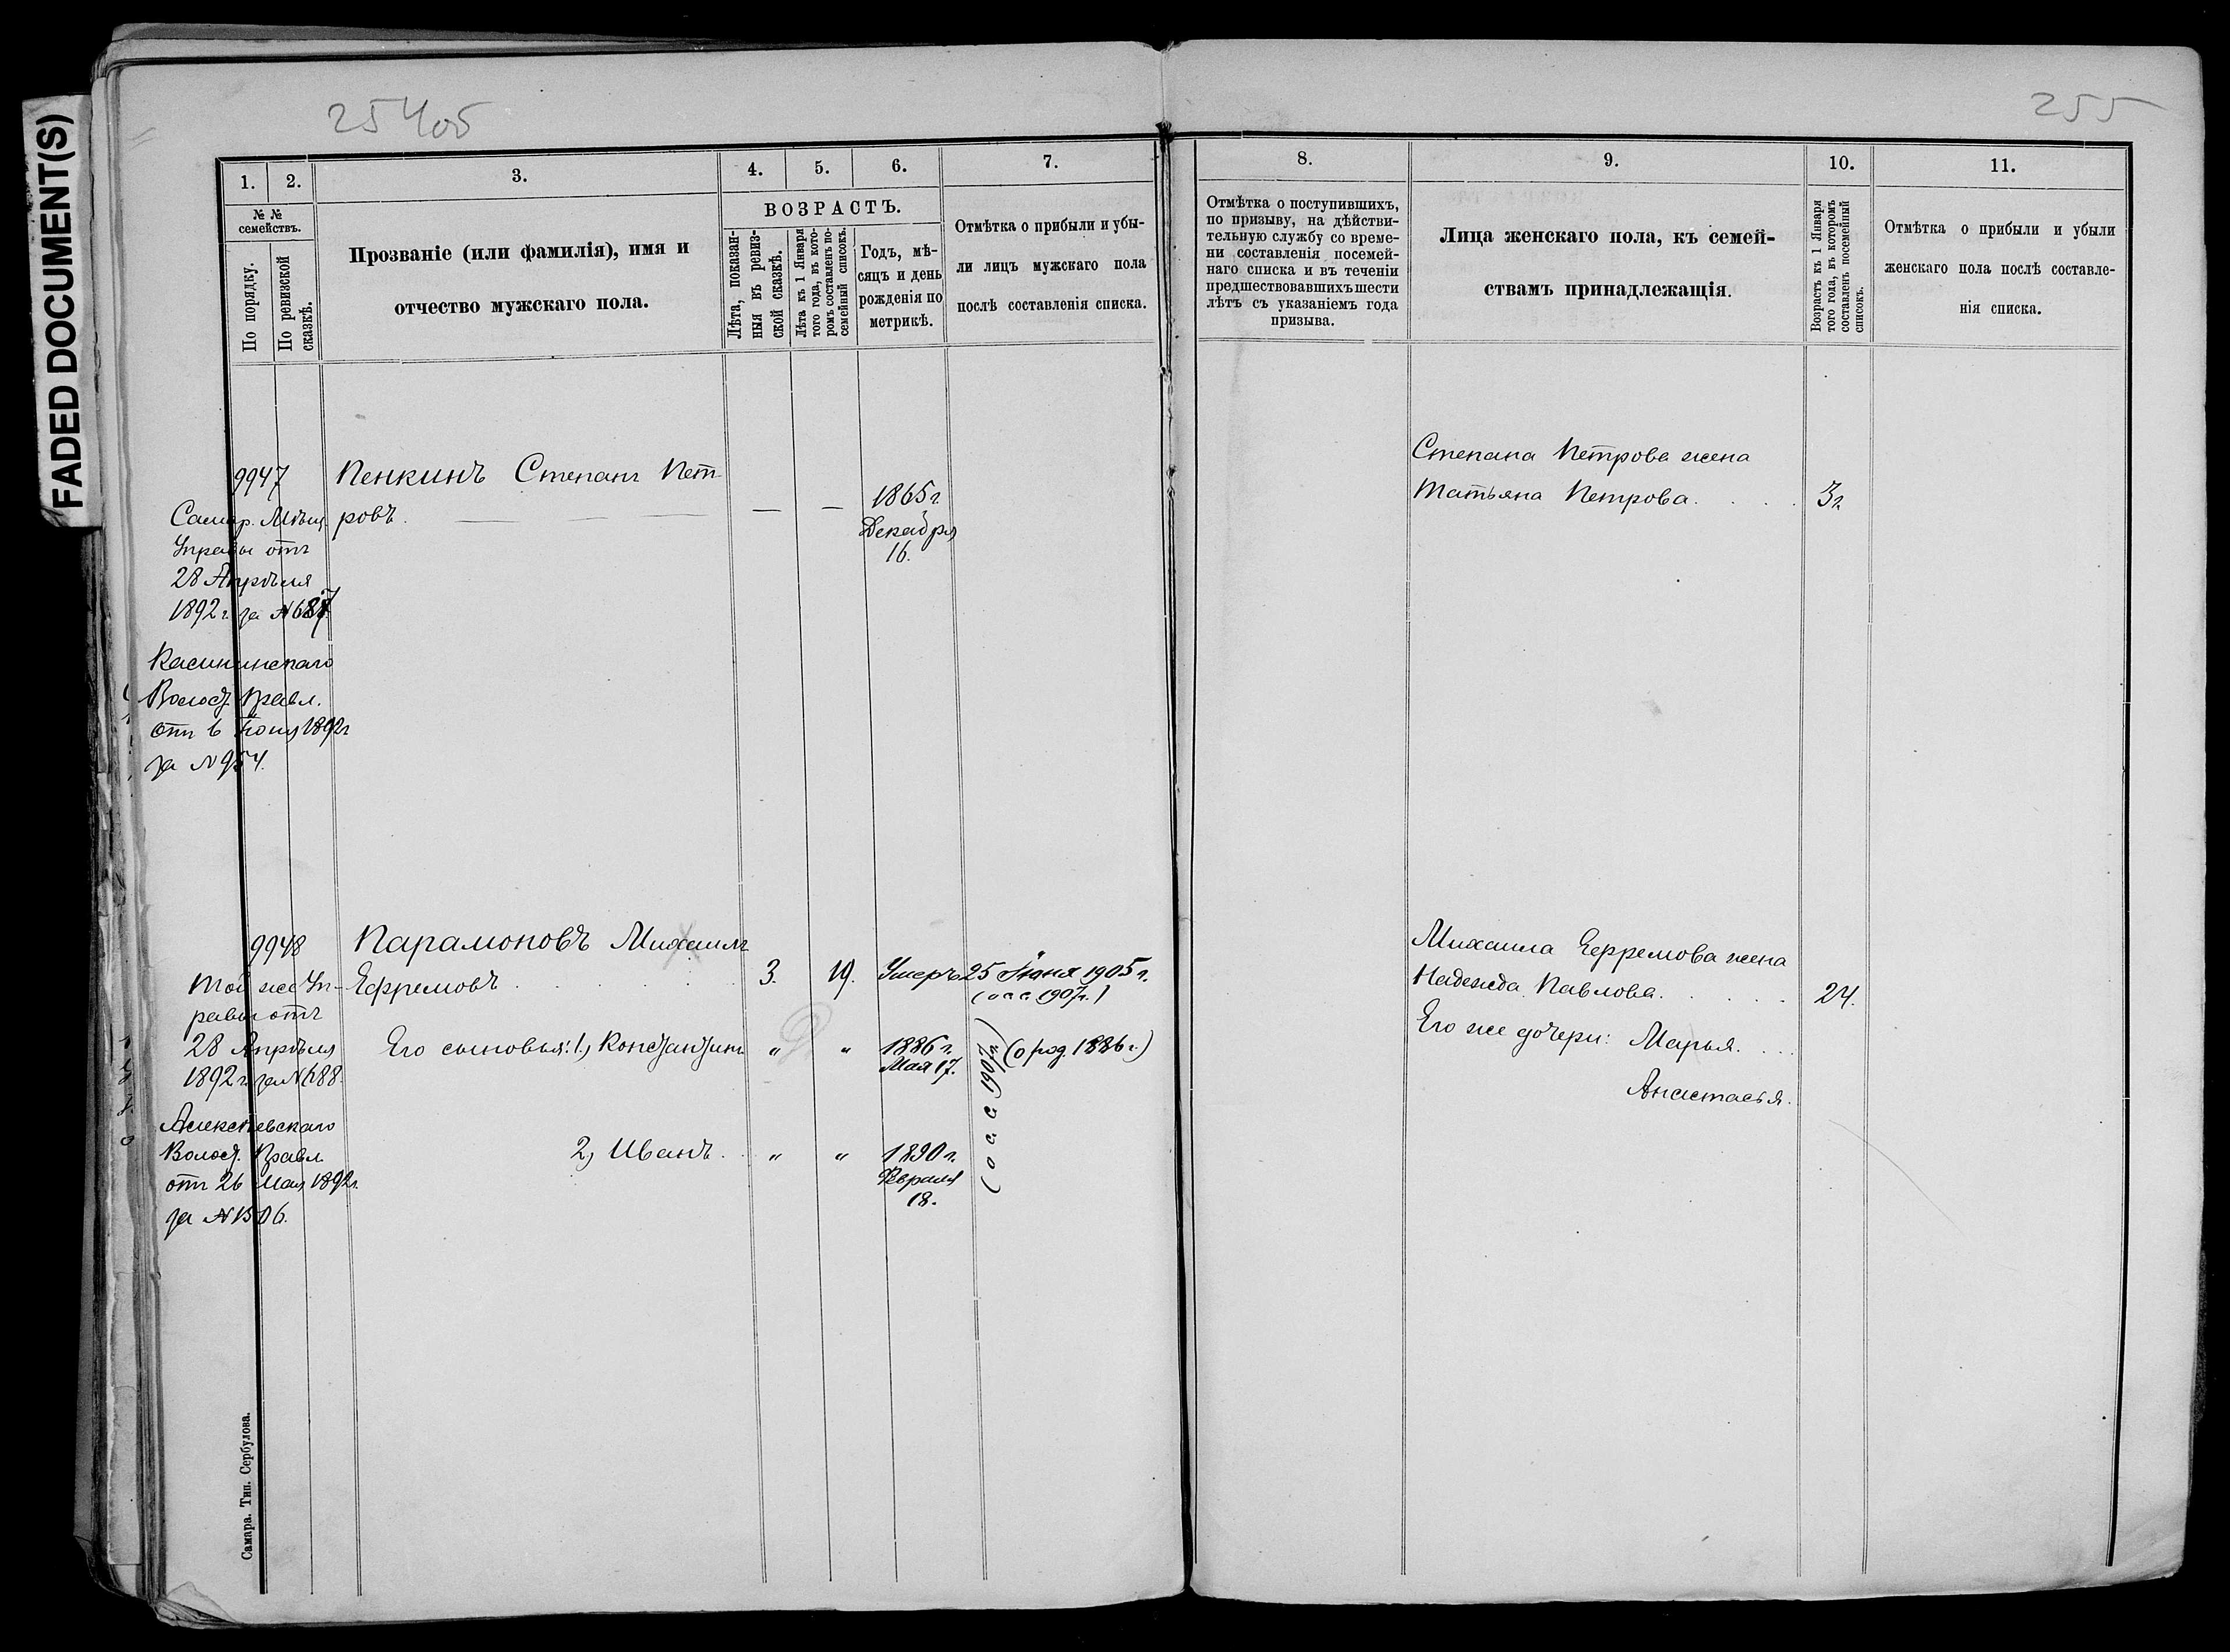 FADED DOCUMENT(S)
254об
255
1.
2.
3.
4.
5.
6.
7.
8.
9.
10.
11.
№ №
семействъ.
По порядку.
По ревизской
сказкѣ.
Прозваніе (или фамилія), имя и
отчество мужскаго пола.
ВОЗРАСТЪ.
Лѣта, показан-
ныя въ ревиз-
ской сказкѣ.
Лѣта къ 1 Января
того года, въ кото-
ромъ составленъ по-
семейный списокъ.
Годъ, мѣ-
сяцъ и день
рожденія по
метрикѣ.
Отмѣтка о прибыли и убы-
ли лицъ мужскаго пола
послѣ составленія списка.
Отмѣтка о поступившихъ,
по призыву, на дѣйстви-
тельную службу со време-
ни составленія посемей-
наго списка и въ теченіи
предшествовавшихъ шести
лѣтъ съ указаніемъ года
призыва.
Лица женскаго пола, къ семей-
ствамъ принадлежащія.
Возрастъ къ 1 Января
того года, въ которомъ
составленъ посемейный
списокъ.
Отмѣтка о прибыли и убыли
женскаго пола послѣ составле-
нія списка.
9947
Самар. Мѣщ.
Управы отъ
28 Апрѣля
1892 г. за №687
Волост. Правл.
отъ 6 Іюня 1892 г
за №954.
Пенкинъ Степанъ Пет
ровъ. — — —
— —
1865 г.
Декабря
16.
Степана Петрова жена
Татьяна Петрова. . . .
9948
Той же Уп-
равы отъ
28 Апрѣля
1892 г. за №688.
Алексѣевскаго
Волост. Правл.
отъ 26 Мая 1892 г.
за №1506.
Парамоновъ Михаилъ
Ефремовъ . . . . .
3.
19.
Умеръ 25 Іюня 1905 г.
(о а с. 1907 г.)
Его сыновья: 1, Константинъ
" "
1886 г.
Мая 17.
(о род. 1886 г.)
2, Иванъ. .
" "
1890 г.
Февраля
18.
(о а с. 1907 г.)
Михаила Ефремова жена
Надежда Павлова. . . . .
24.
Его же дочери: Марья. . . .
Анастасья.
Самара. Тип. Сербулова.